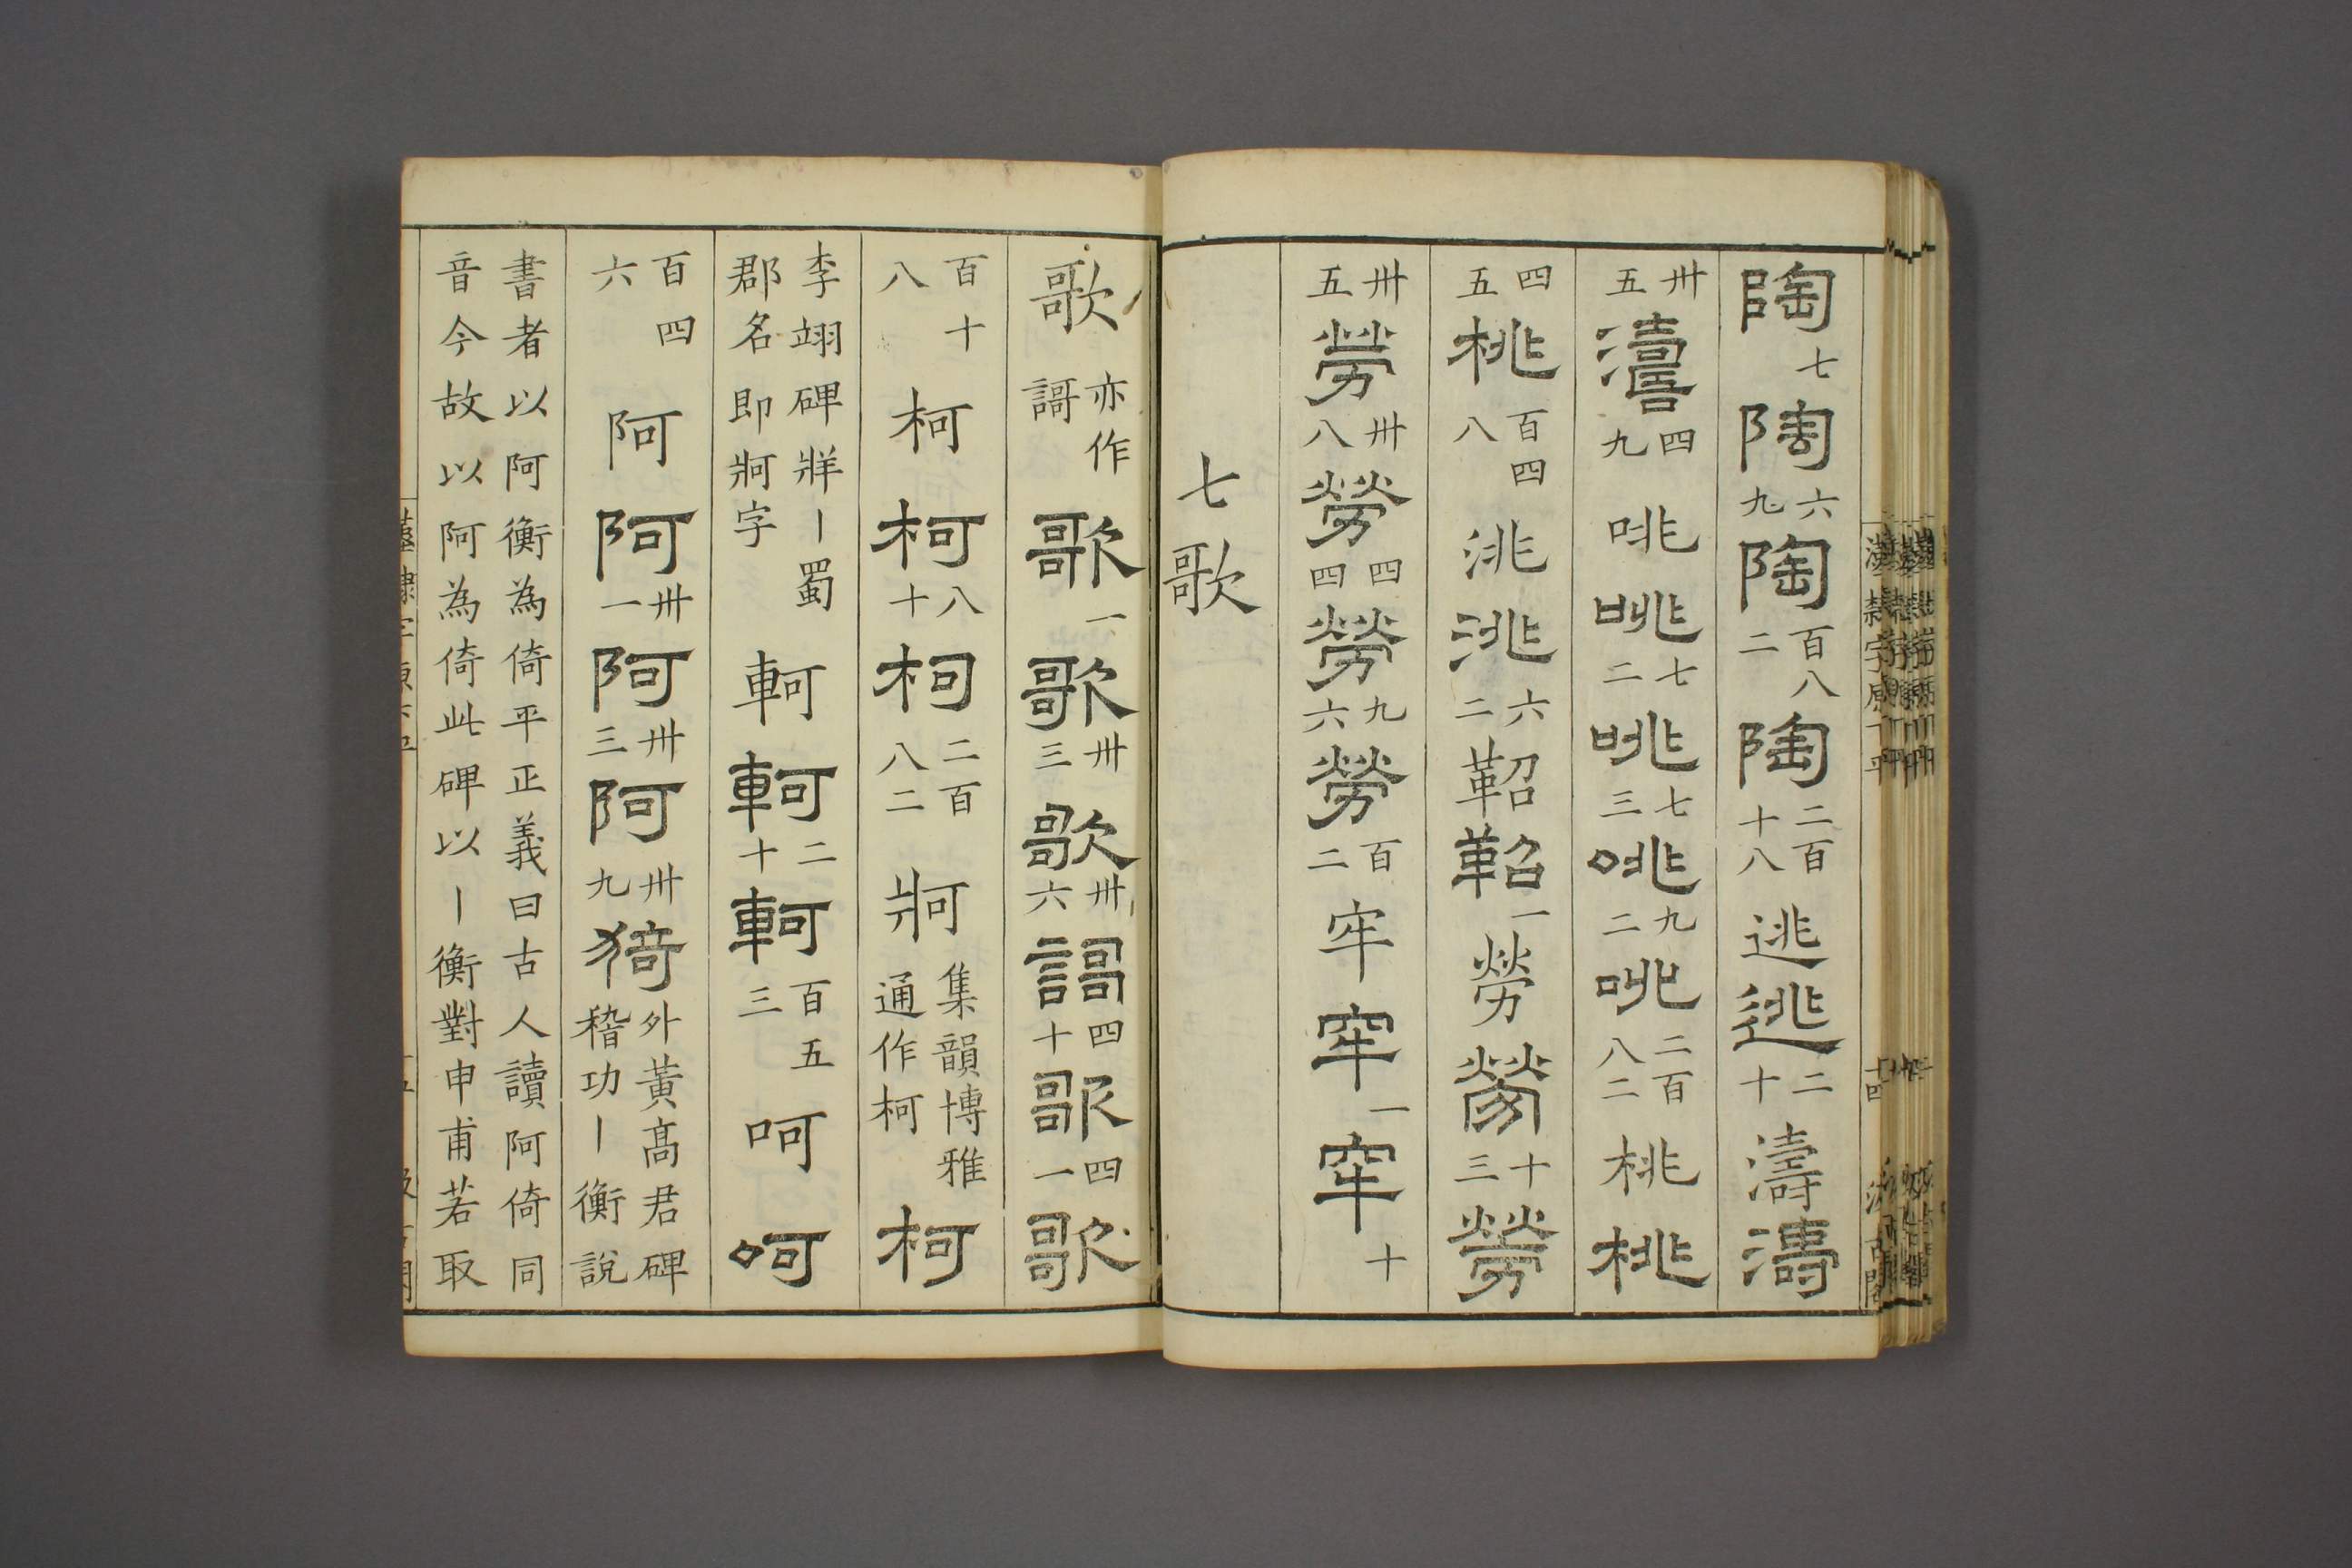 陶七陶六九陶百八二陶二百十八逃逃二十濤濤
卅五濤四九咷咷七二咷七三咷九二咷二百八二桃桃
四五桃百四八洮洮六二鞀鞀一勞勞十三勞
卅五勞卅八勞四四勞九六勞百二牢牢一牢十
七歌
歌亦作謌歌一歌卅三歌卅六謌四十歌四一歌
百十八柯柯八十柯二百八二牁集韻博雅通作柯柯
李翊碑牂丨蜀郡名即牁字軻軻二十軻百五三呵呵
百四六阿阿卅一阿卅三阿卅九猗外黃高君碑稽功丨衡說
書者以阿衡為倚平正義曰古人讀阿倚同
音今故以阿為倚此碑以丨衡對申甫若取
漢隸字原下平
十四
汲古閣